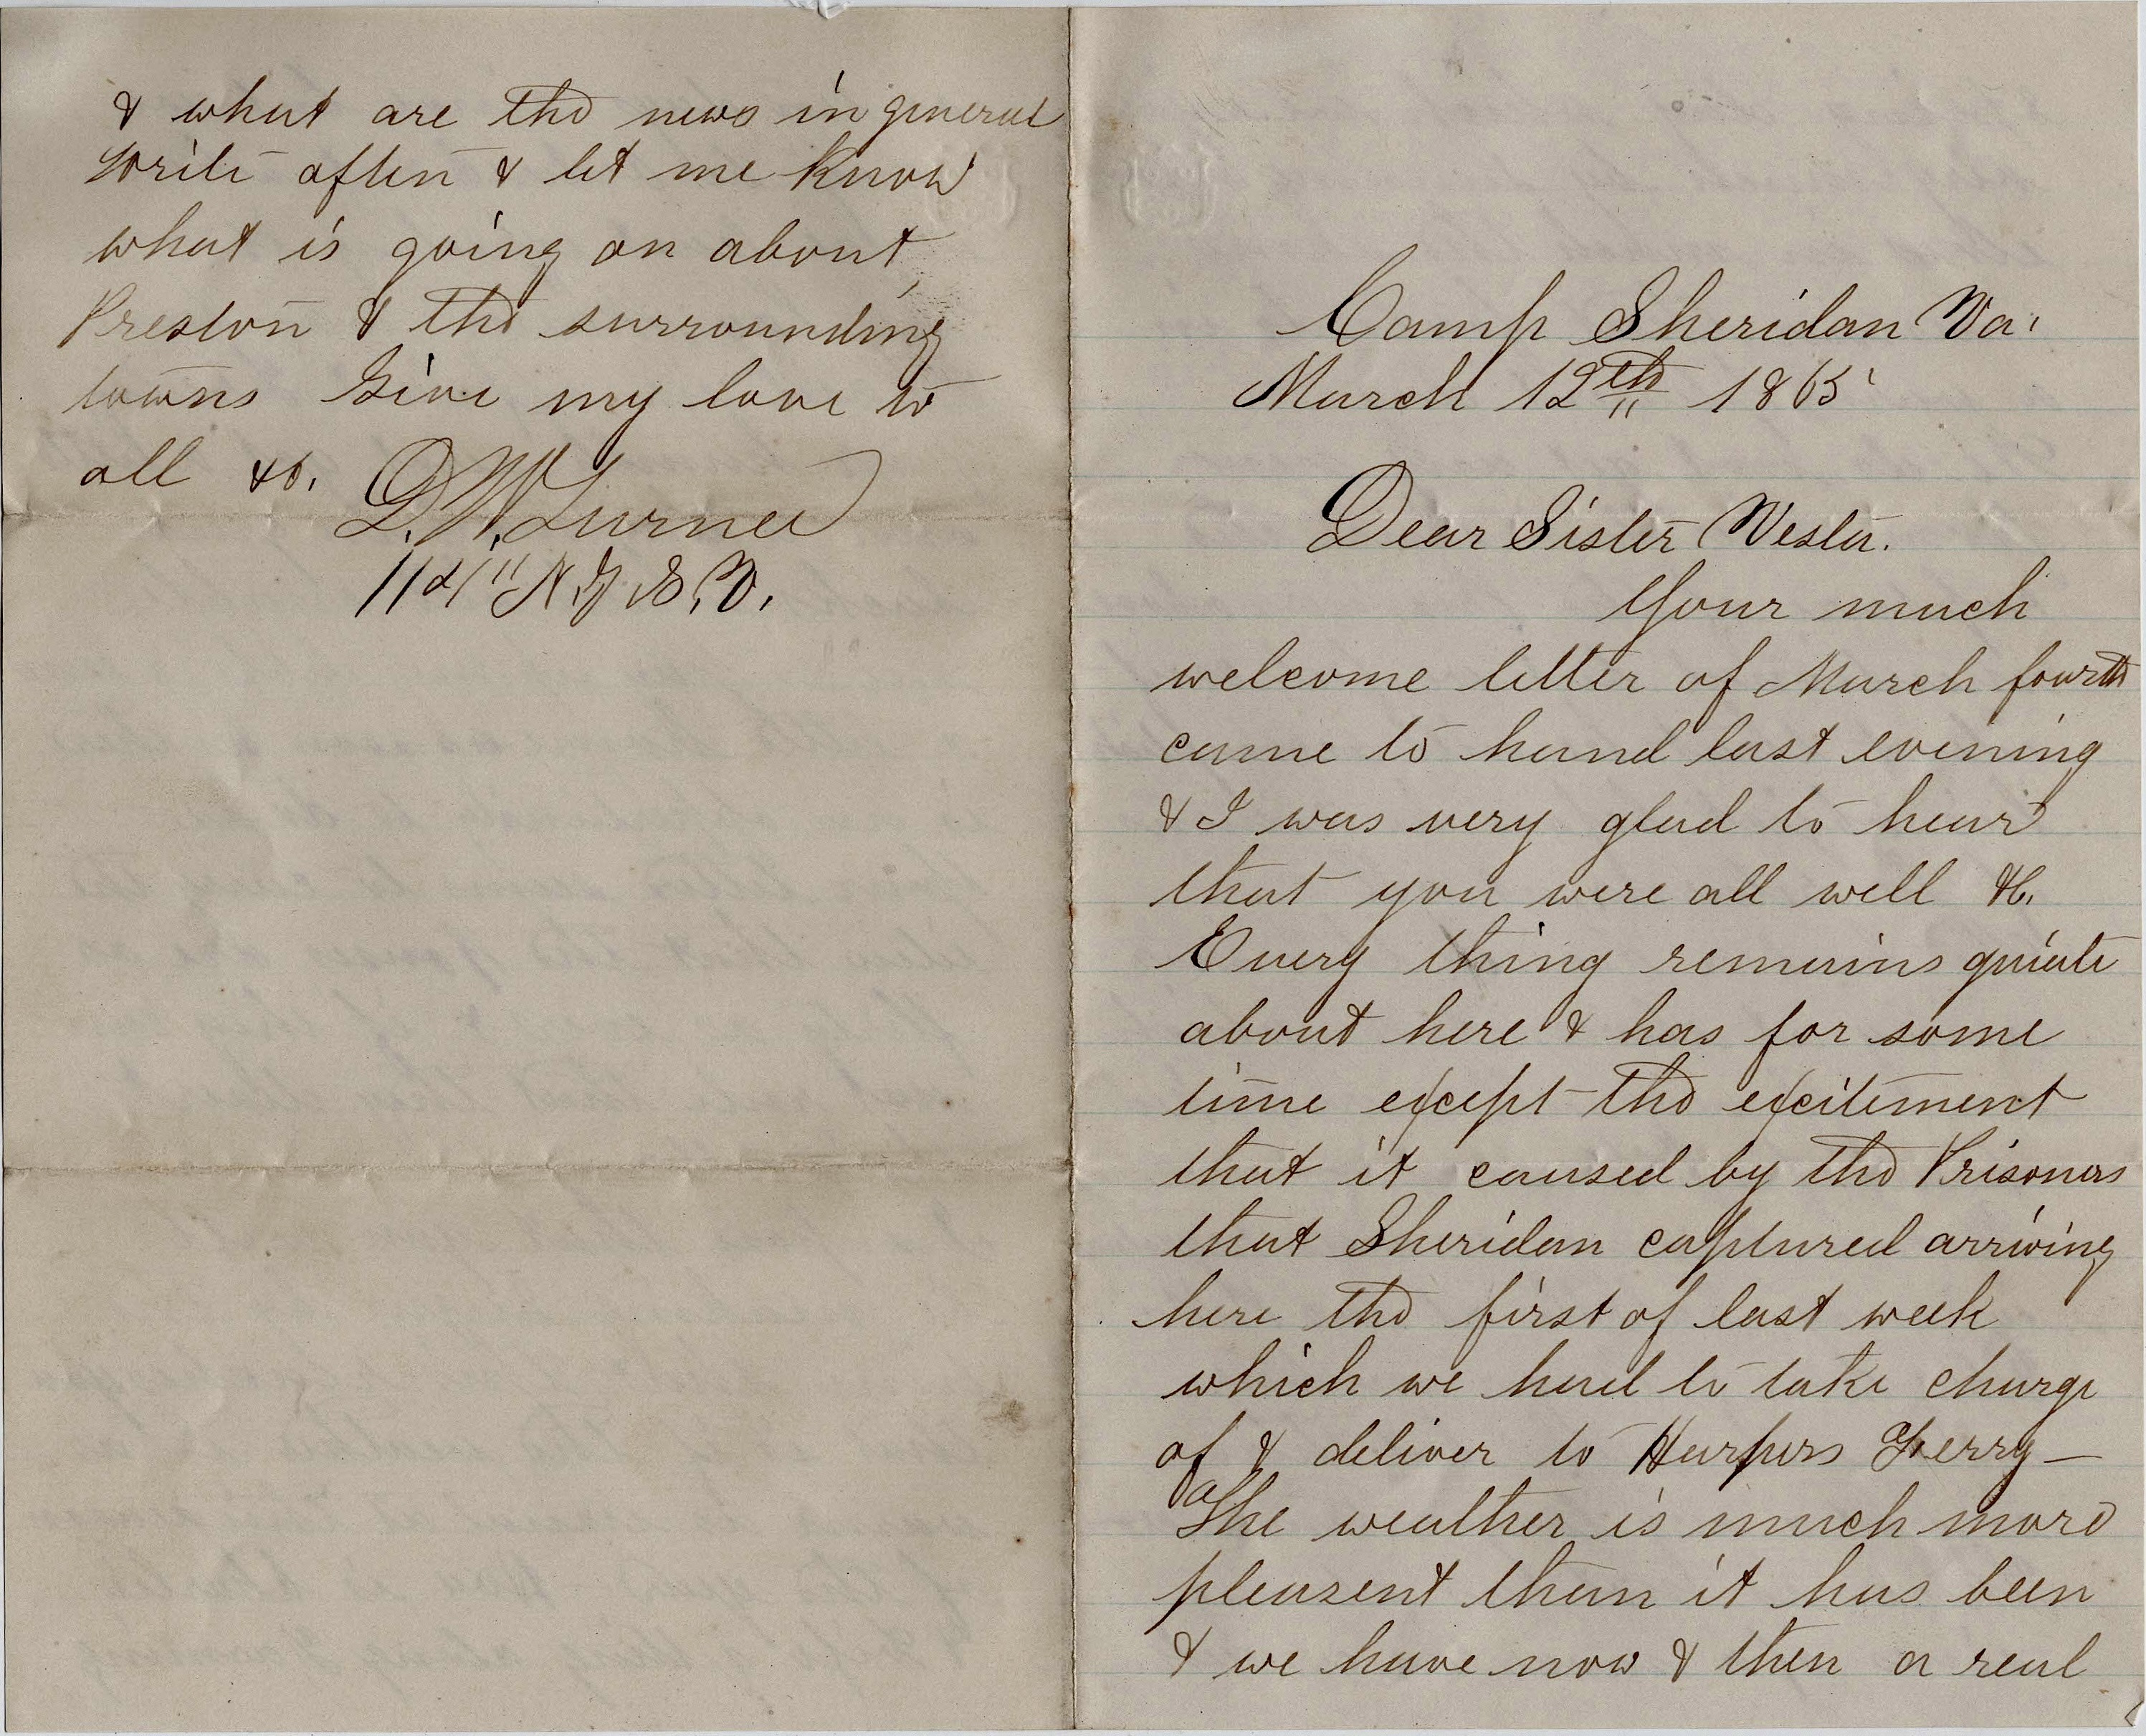 & what are the news in general
write often & let me know
what is going on about
Preston & the surrounding
towns Give my love to
all &c.
D. W. Turner
114" N.Y.S.V.
Camp Sheridan Va.
March 12th 1865
Dear Sister Vesta.
Your much
welcome letter of March fourth
came to hand last evening
& I was very glad to hear
that you were all well &c.
Every thing remains quiete
about here & has for some
time except the excitement
that it caused by the Prisoners
that Sheridan captured arriving
here the first of last week
which we had to take charge
of & deliver to Harpers Ferry —
The weather is much more
pleasent than it has been
& we have now & then a real